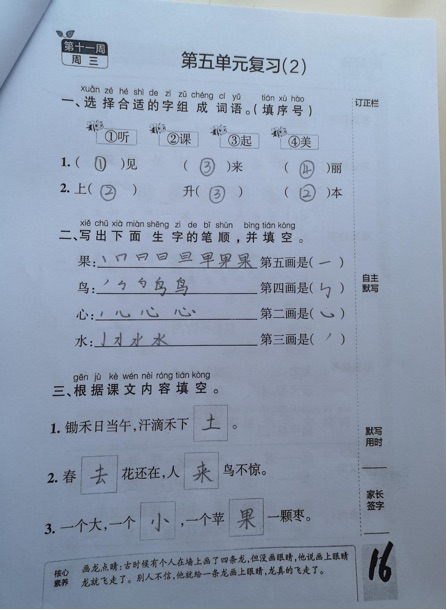 第十一周
周三
第五单元复习(2)
xuǎn zé hé shì de zì zǔ chéng cí yǔ tián xù hào
一、选择合适的字组成词语。(填序号)
订正栏
①听 ②课 ③起 ④美
1. ( ① )见 ( ③ )来 ( ④ )丽
2. 上( ② ) 升( ③ ) ( ② )本
xiě chū xià miàn shēng zì de bǐ shùn bìng tián kòng
二、写出下面生字的笔顺,并填空。
果: 丨 冂 日 旦 早 果 果 第五画是( 一 )
自主
默写
鸟: 鸟 鸟 第四画是( ㇉ )
心: 心 心 第二画是( ㇃ )
水: 水 水 第三画是( ㇒ )
gēn jù kè wén nèi róng tián kòng
三、根据课文内容填空。
1. 锄禾日当午,汗滴禾下 土 。
默写
用时
2. 春 去 花还在,人 来 鸟不惊。
家长
签字
3. 一个大,一个 小 ,一个苹 果 一颗枣。
核心
素养
画龙点睛:古时候有个人在墙上画了四条龙,但没画眼睛,他说画上眼睛
龙就飞走了。别人不信,他就给一条龙画上眼睛,龙真的飞走了。
16